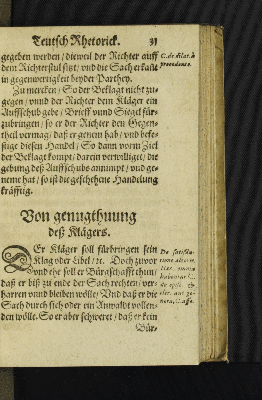 Teutsch Rhetorick. 31
gegeben werden / dieweil der Richter auff
dem Richterstul sitzt / vnd die Sach erkañt
in gegenwertigkeit beyder Parthey.
C. de dilat. à
procedente.
Zu mercken / So der Beklagt nicht zu-
gegen / vnnd der Richter dem Kläger ein
Auffschub gebe / Brieff vnnd Sigel für-
zubringen / so er der Richter den Gegen-
theil vermag / daß er genem hab / vnd befe-
stige diesen Handel / So dann vorm Ziel
der Beklagt kompt / darein verwilliget / die
gebung deß Auffschubs annimpt / vnd ge-
neme hat / so ist die geschehene Handelung
kräfftig.
Von genugthuung
deß Klägers.
DEr Kläger soll fürbringen sein
Klag oder Libel / ec. Doch zuvor
vnd ehe soll er Bürgschafft thun /
daß er biß zu ende der Sach rechten / ver-
harren vnnd bleiben wölle / Vnd daß er die
Sach durch sich oder ein Anwaldt vollen-
den wölle. So er aber schweret / daß er kein
De satisda-
tione
Bür-